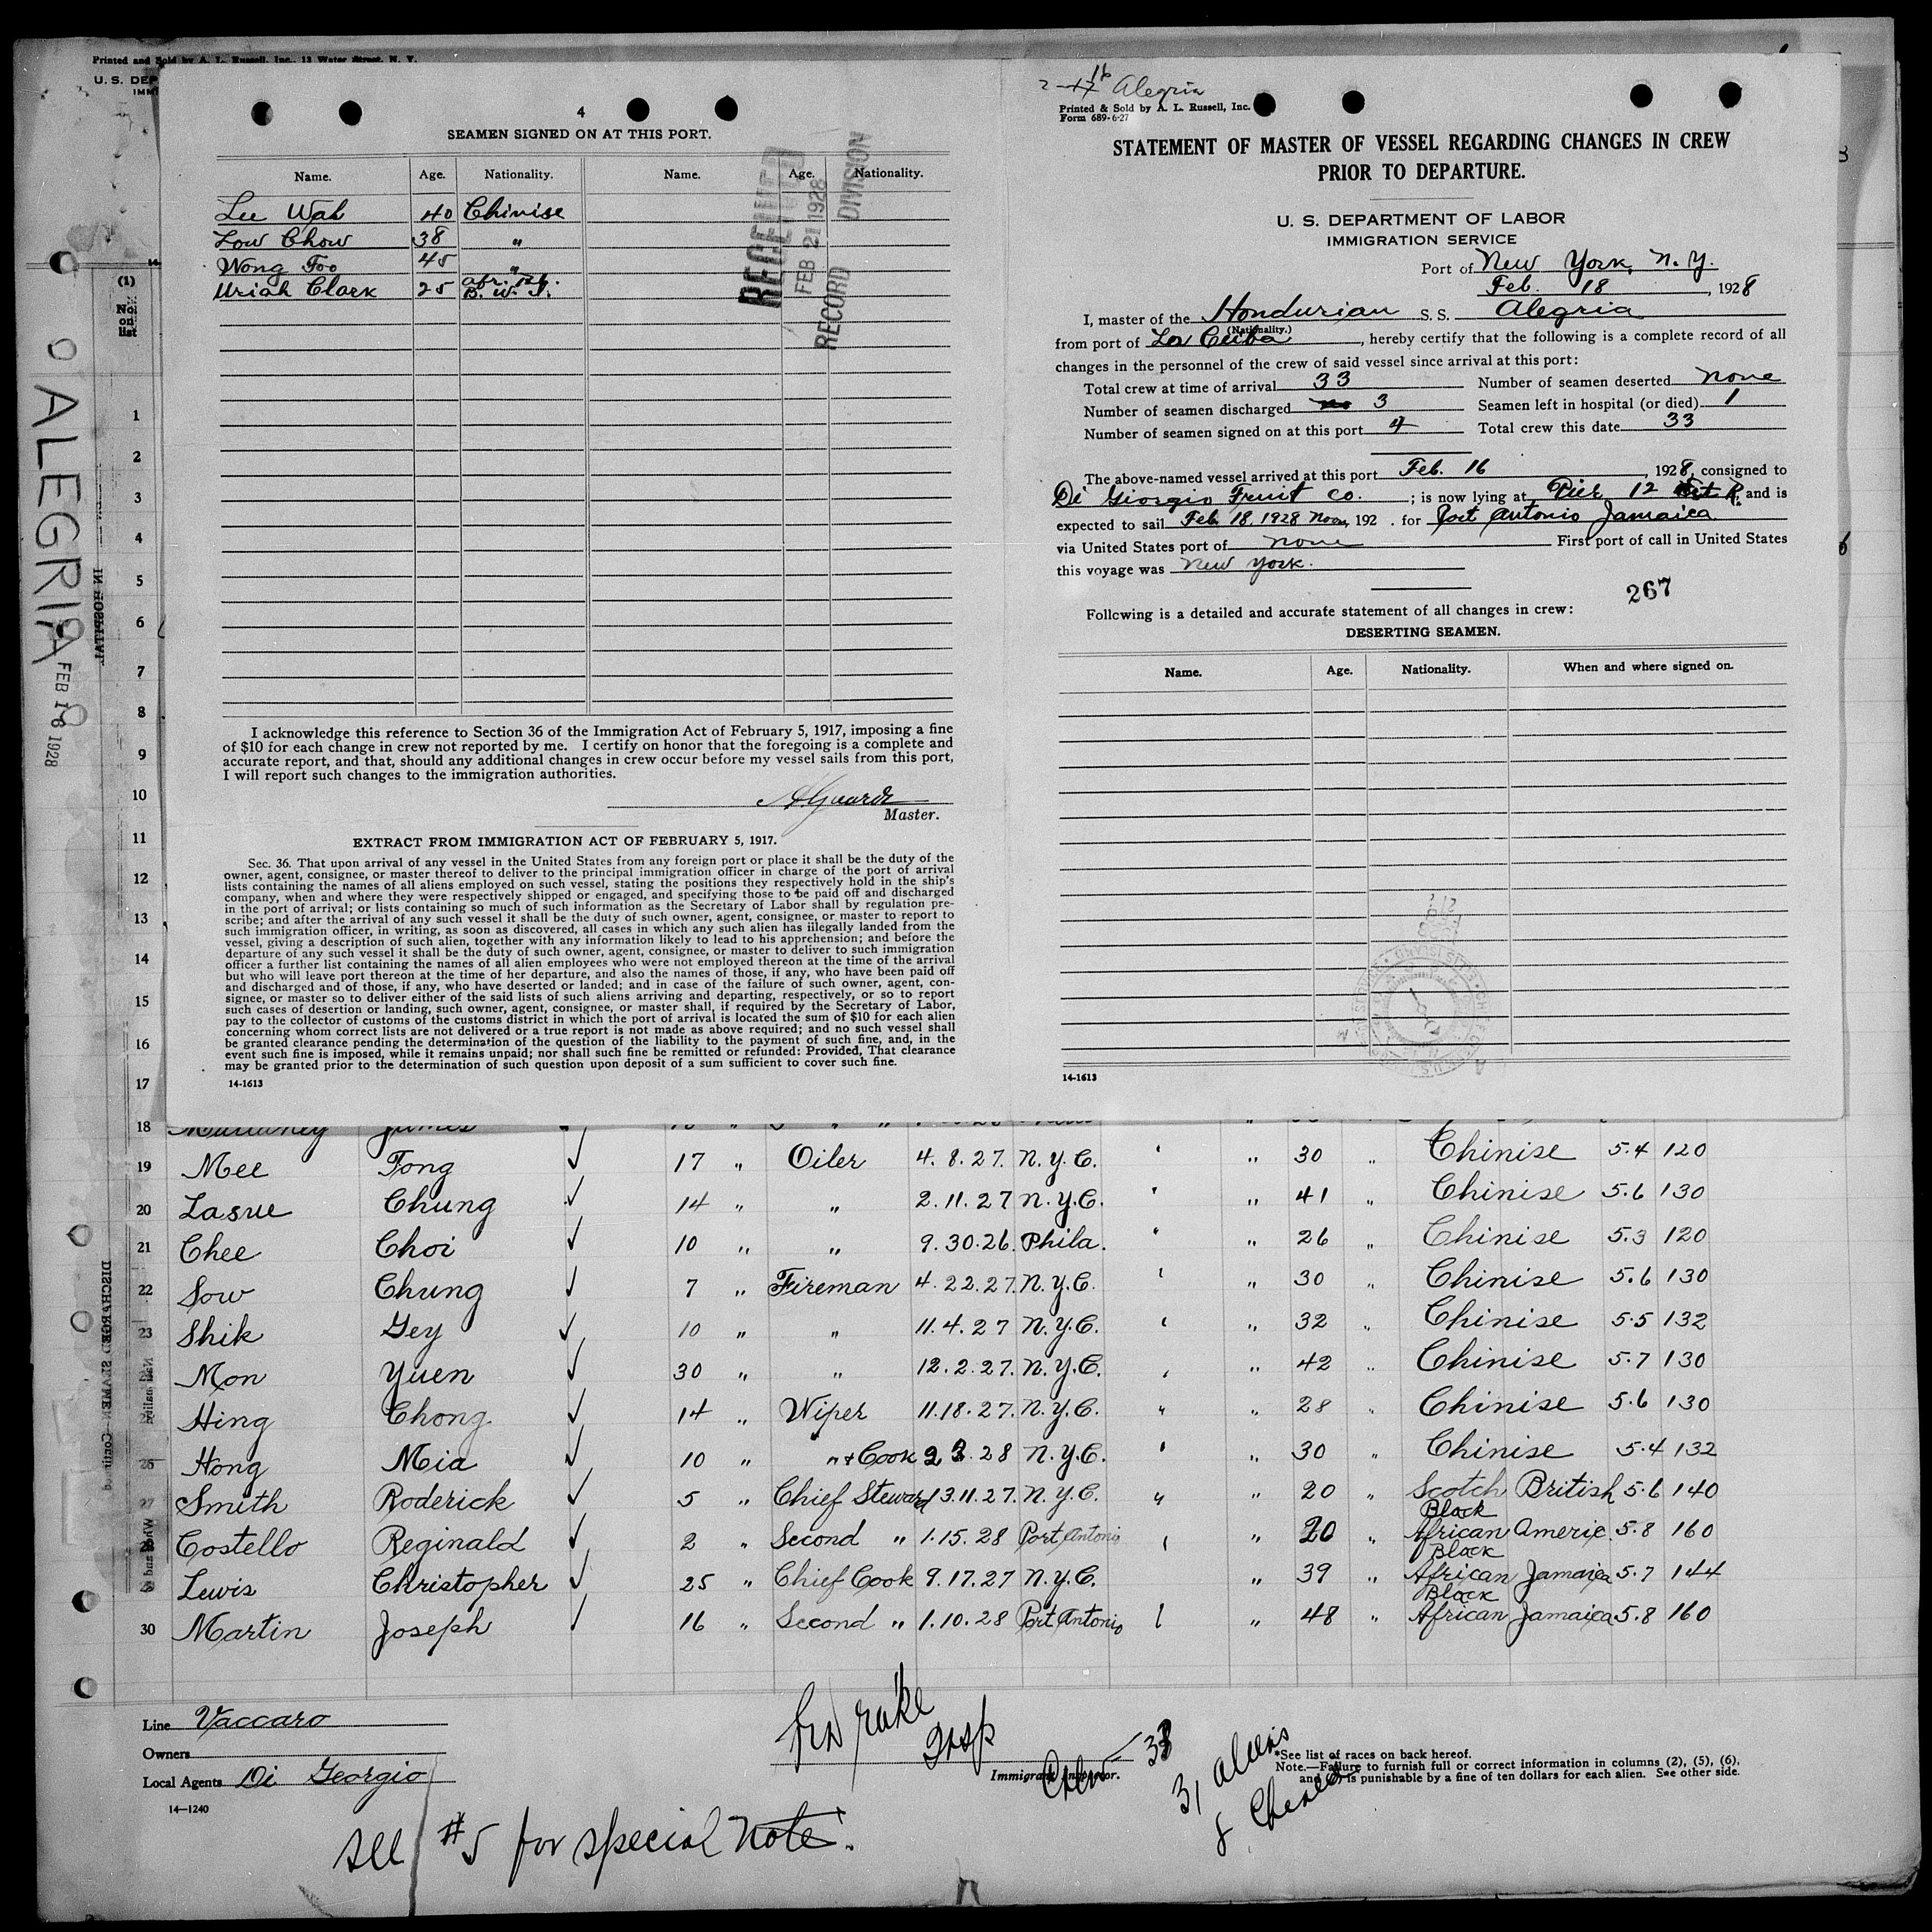 Printed and Sold by A. L. Russell, Inc., 13 Water Street, N. Y.
U. S. DEP
IMMI
4
SEAMEN SIGNED ON AT THIS PORT.
Name. Age. Nationality. Name. Age. Nationality.
Lee Wah 40 Chinise
Low Chow 38 "
Wong Foo 45 "
Uriah Clark 25 afr. B. W. I.
RECEIVED
FEB 21 1928
RECORD DIVISION
I acknowledge this reference to Section 36 of the Immigration Act of February 5, 1917, imposing a fine
of $10 for each change in crew not reported by me. I certify on honor that the foregoing is a complete and
accurate report, and that, should any additional changes in crew occur before my vessel sails from this port,
I will report such changes to the immigration authorities.
Master.
EXTRACT FROM IMMIGRATION ACT OF FEBRUARY 5, 1917.
Sec. 36. That upon arrival of any vessel in the United States from any foreign port or place it shall be the duty of the
owner, agent, consignee, or master thereof to deliver to the principal immigration officer in charge of the port of arrival
lists containing the names of all aliens employed on such vessel, stating the positions they respectively hold in the ship's
company, when and where they were respectively shipped or engaged, and specifying those to be paid off and discharged
in the port of arrival; or lists containing so much of such information as the Secretary of Labor shall by regulation pre-
scribe; and after the arrival of any such vessel it shall be the duty of such owner, agent, consignee, or master to report to
such immigration officer, in writing, as soon as discovered, all cases in which any such alien has illegally landed from the
vessel, giving a description of such alien, together with any information likely to lead to his apprehension; and before the
departure of any such vessel it shall be the duty of such owner, agent, consignee, or master to deliver to such immigration
officer a further list containing the names of all alien employees who were not employed thereon at the time of the arrival
but who will leave port thereon at the time of her departure, and also the names of those, if any, who have been paid off
and discharged and of those, if any, who have deserted or landed; and in case of the failure of such owner, agent, con-
signee, or master so to deliver either of the said lists of such aliens arriving and departing, respectively, or so to report
such cases of desertion or landing, such owner, agent, consignee, or master shall, if required by the Secretary of Labor,
pay to the collector of customs of the customs district in which the port of arrival is located the sum of $10 for each alien
concerning whom correct lists are not delivered or a true report is not made as above required; and no such vessel shall
be granted clearance pending the determination of the question of the liability to the payment of such fine, and, in the
event such fine is imposed, while it remains unpaid; nor shall such fine be remitted or refunded: Provided, That clearance
may be granted prior to the determination of such question upon deposit of a sum sufficient to cover such fine.
14-1613
2-17 16 Alegria
Printed & Sold by A. L. Russell, Inc.
Form 689-6-27
STATEMENT OF MASTER OF VESSEL REGARDING CHANGES IN CREW
PRIOR TO DEPARTURE.
U. S. DEPARTMENT OF LABOR
IMMIGRATION SERVICE
Port of New York, N. Y.
Feb. 18, 1928
I, master of the Hondurian S. S. Alegria
(Nationality.)
from port of La Ceiba, hereby certify that the following is a complete record of all
changes in the personnel of the crew of said vessel since arrival at this port:
Total crew at time of arrival 33 Number of seamen deserted none
Number of seamen discharged no 3 Seamen left in hospital (or died) 1
Number of seamen signed on at this port 4 Total crew this date 33
The above-named vessel arrived at this port Feb. 16, 1928, consigned to
Di Giorgio Fruit Co.; is now lying at Pier 12 R. and is
expected to sail Feb. 18, 1928 Noon, 192 . for Port Antonio Jamaica
via United States port of none First port of call in United States
this voyage was New York.
267
Following is a detailed and accurate statement of all changes in crew:
DESERTING SEAMEN.
Name. Age. Nationality. When and where signed on.
14-1613
ALEGRIA
FEB 16 1928
IN HOSPITAL
DISCHARGED SEAMEN—Contin
(1)
No. on list
1
2
3
4
5
6
7
8
9
10
11
12
13
14
15
16
17
18 Mullaney James
19 Mee Fong ✓ 17 " Oiler 4. 8. 27. N. Y. C. ' " 30 " Chinise 5.4 120
20 Lasue Chung ✓ 14 " " 2. 11. 27 N. Y. C. ' " 41 " Chinise 5.6 130
21 Chee Choi ✓ 10 " " 9. 30. 26. Phila. " " 26 " Chinise 5.3 120
22 Sow Chung ✓ 7 " Fireman 4. 22. 27. N. Y. C. ' " 30 " Chinise 5.6 130
23 Shik Gey ✓ 10 " " 11. 4. 27 N. Y. C. ' " 32 " Chinise 5.5 132
24 Mon Yuen ✓ 30 " " 12. 2. 27. N. Y. C. ' " 42 " Chinise 5.7 130
25 Hing Chong ✓ 14 " Wiper 11. 18. 27. N. Y. C. " " 28 " Chinise 5.6 130
26 Hong Mia ✓ 10 " " + Cook 2 3. 28 N. Y. C. ' " 30 " Chinise 5.4 132
27 Smith Roderick ✓ 5 " Chief Steward 13. 11. 27. N. Y. C. " " 20 " Scotch British 5.6 140
28 Costello Reginald ✓ 2 " Second " 1. 15. 28 Port Antonio " 20 " Black African Americ. 5.8 160
29 Lewis Christopher ✓ 25 " Chief Cook 9. 17. 27 N. Y. C. " 39 " Black African Jamaica 5.7 144
30 Martin Joseph ✓ 16 " Second " 1. 10. 28 Port Antonio " 48 " Black African Jamaica 5.8 160
Line Vaccaro
Owners
Local Agents Di Georgio
14—1240
Insp
Immigrant Inspector.
Crew 33
31 aliens
8 Chinese
*See list of races on back hereof.
Note.—Failure to furnish full or correct information in columns (2), (5), (6),
and is punishable by a fine of ten dollars for each alien. See other side.
See #5 for special note.